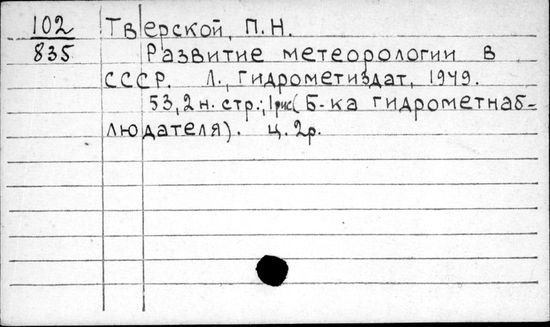 102 Тверской, П.Н.
835 Развитие метеорологии в
СССР. Л., Гидрометиздат, 1949.
53, 2 н. стр.; 1 рис (Б-ка гидрометнаб-
людателя). ц. 2р.